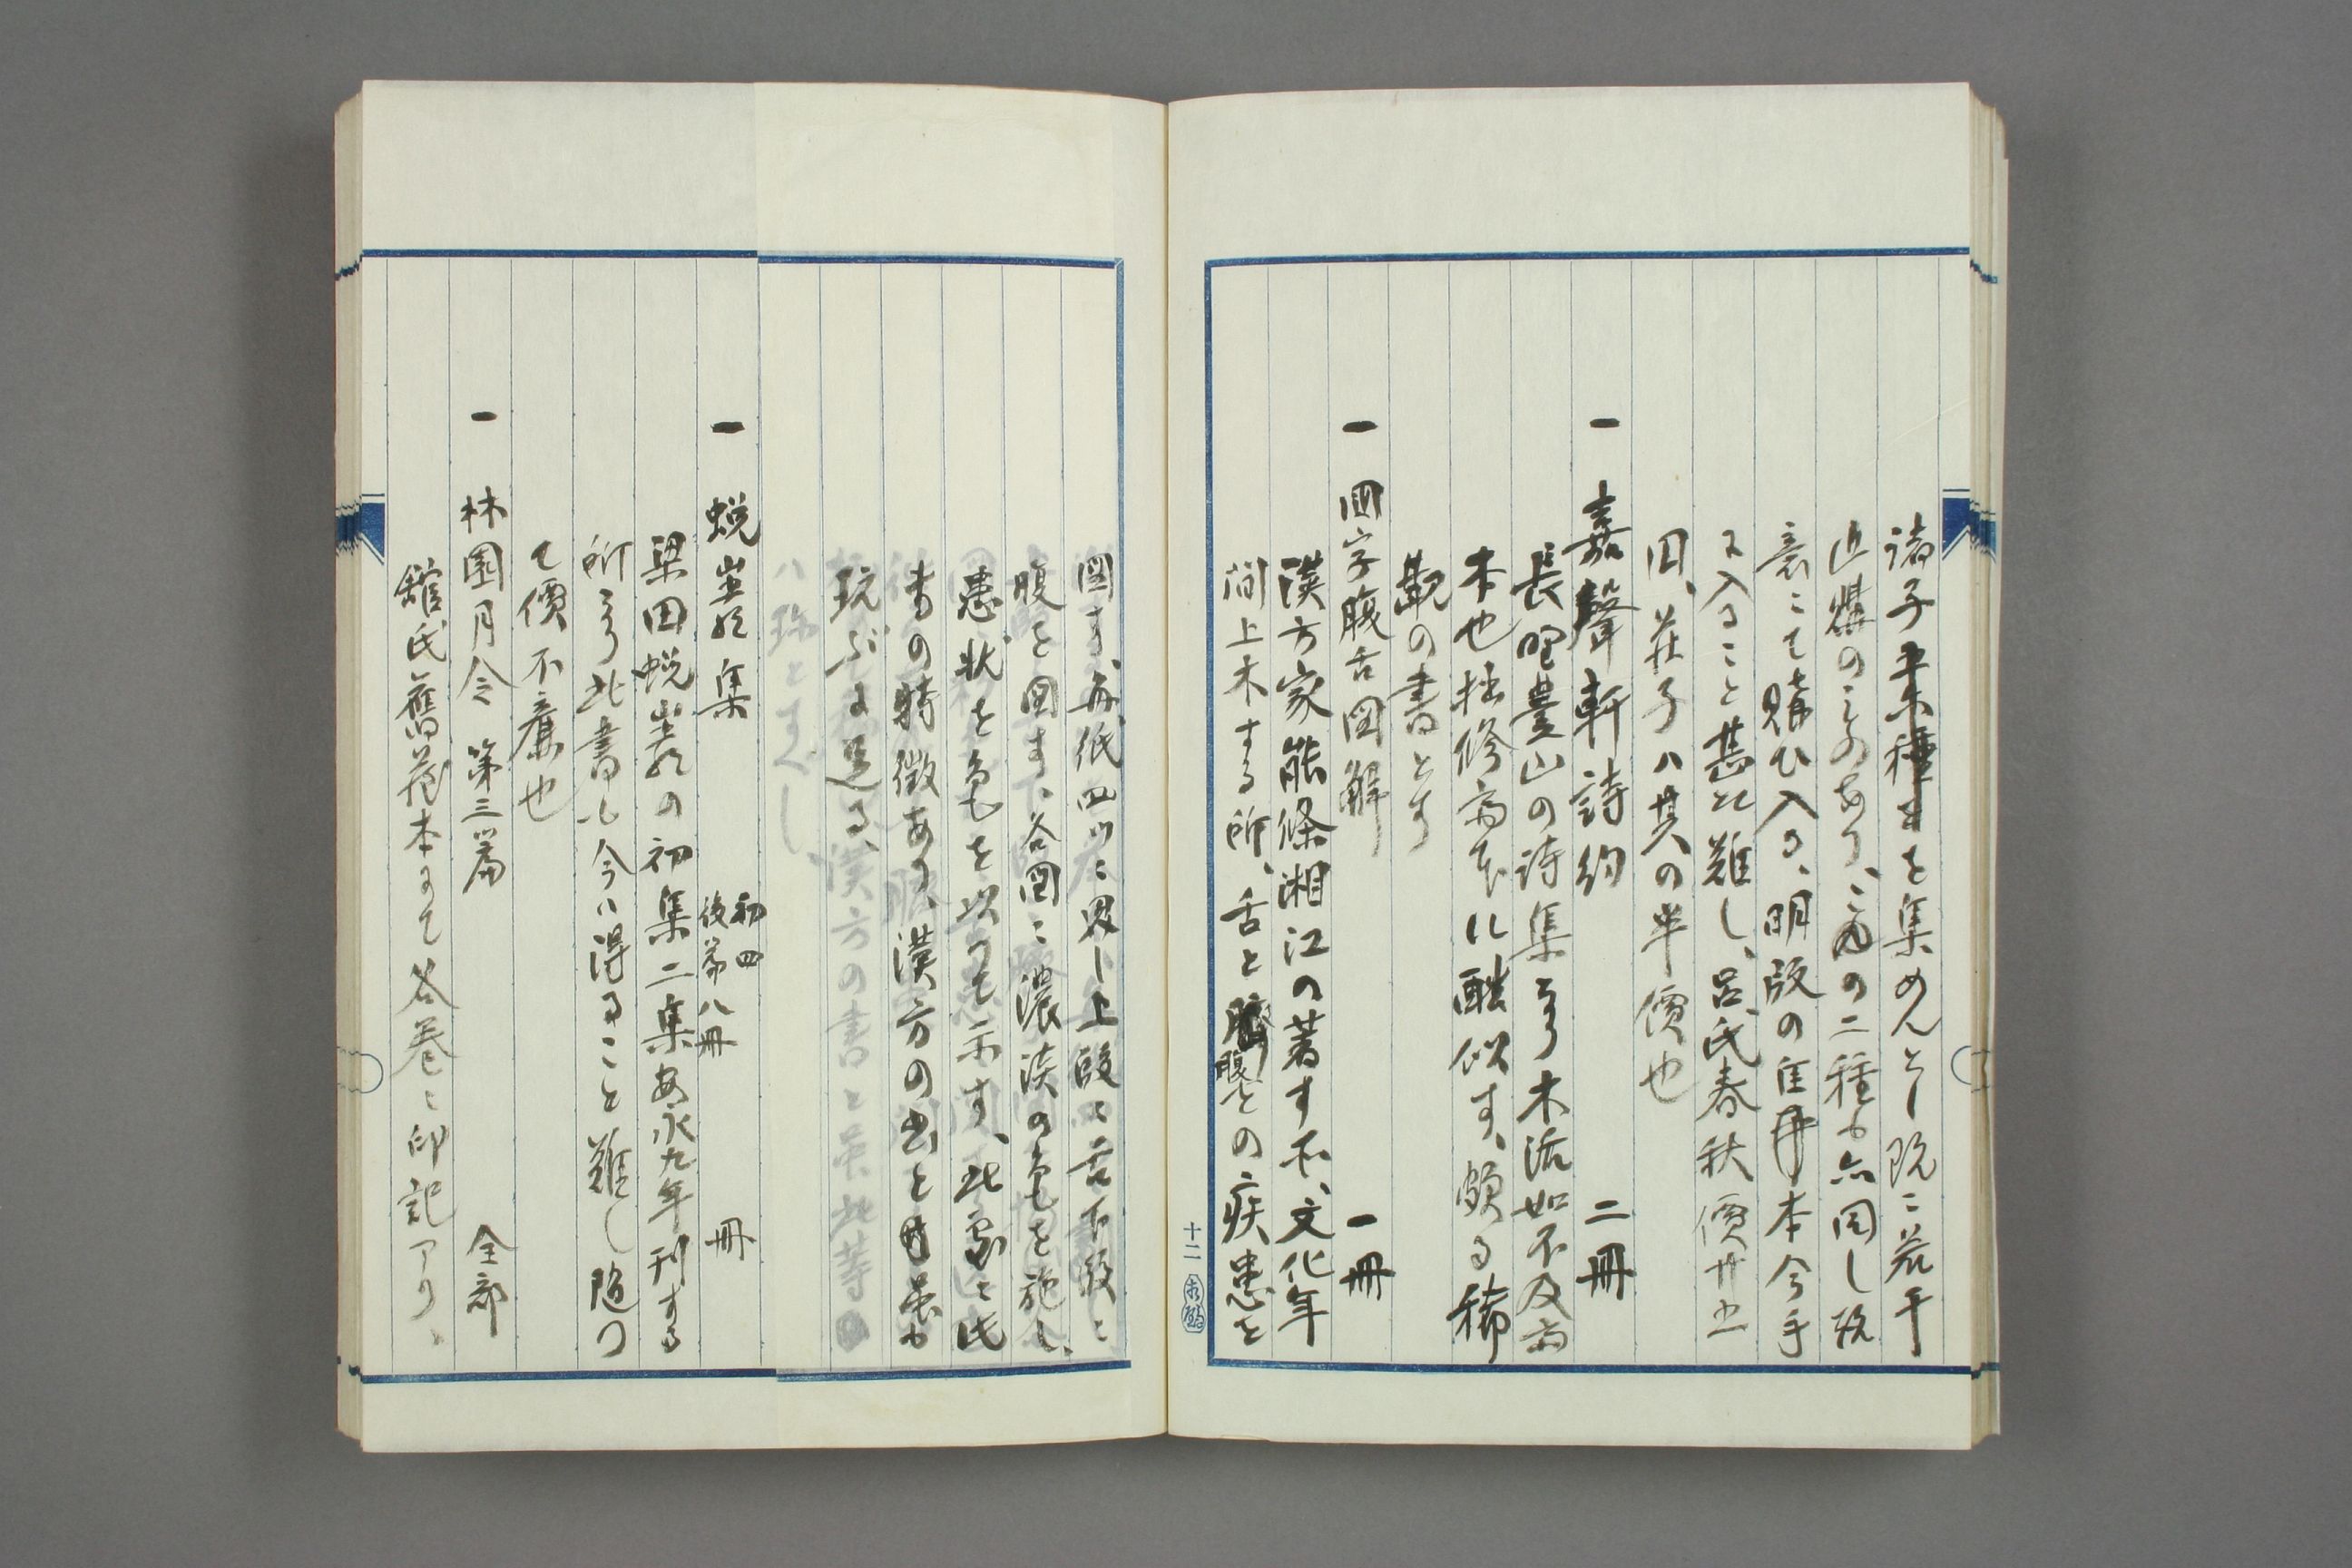 諸子未種を集めんとし既に若干
近獲のものあり、この二種も亦同し既
表にて購ひ入る、明版の唐本今手
に入ること甚だ難し、呂氏春秋價廿五
円、莊子ハ其の半價也
一 嘉聲軒詩約 二冊
長野豊山の詩集なり木活如不及斎
本也拙修斎本に酷似す、頗る稀
覯の書とす
一 四字腹舌図解 一冊
漢方家能條湘江の著す不、文化年
間上木する所、舌と腹との疾患を
図す、毎紙四ツに界し上段に舌下段に
腹を図す、各図に濃淡の色を施し、
患状を色を以つて示す、此象に此
書の特徴あり、漢方の書と雖も
玩ぶに足る、
一 蛻巖集 初四 後篇八冊 冊
梁田蛻巖の初集二集安永九年刊する
所なり此書も今ハ得ること難し随つ
て價不廉也
一 林園月令 第三篇 全部
館氏舊藏本にて各巻に印記アり、
十二